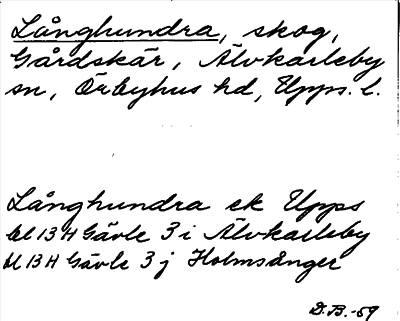 Långhundra, skog,
Gårdskär, Älvkarleby
sn, Örbyhus hd, Upps. l.
Långhundra ek Upps
bl 13 H Gävle 3 i Älvkarleby
bl 13 H Gävle 3 j Holmsånger
D.B.-59